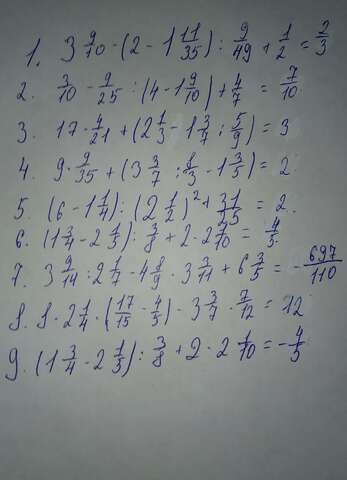 1. 3 9/70 - (2 - 1 11/35) : 9/49 + 1/2 = 2/3
2. 3/10 - 9/25 : (4 - 1 9/10) + 4/7 = 7/10
3. 17 · 4/21 + (2 1/3 - 1 3/7 : 5/9) = 3
4. 9 · 9/35 + (3 3/7 : 8/3 - 1 3/5) = 2
5. (6 - 1 1/4) : (2 1/2)² + 31/25 = 2.
6. (1 3/4 - 2 1/5) : 3/8 + 2 · 2 7/10 = 4/5
7. 3 9/14 : 2 1/7 - 4 8/9 · 3 3/11 + 6 3/5 = - 697/110
8. 8 · 2 1/4 · (17/15 - 4/5) · 3 3/7 · 7/12 = 12
9. (1 3/4 - 2 1/5) : 3/8 + 2 · 2 1/10 = - 4/5